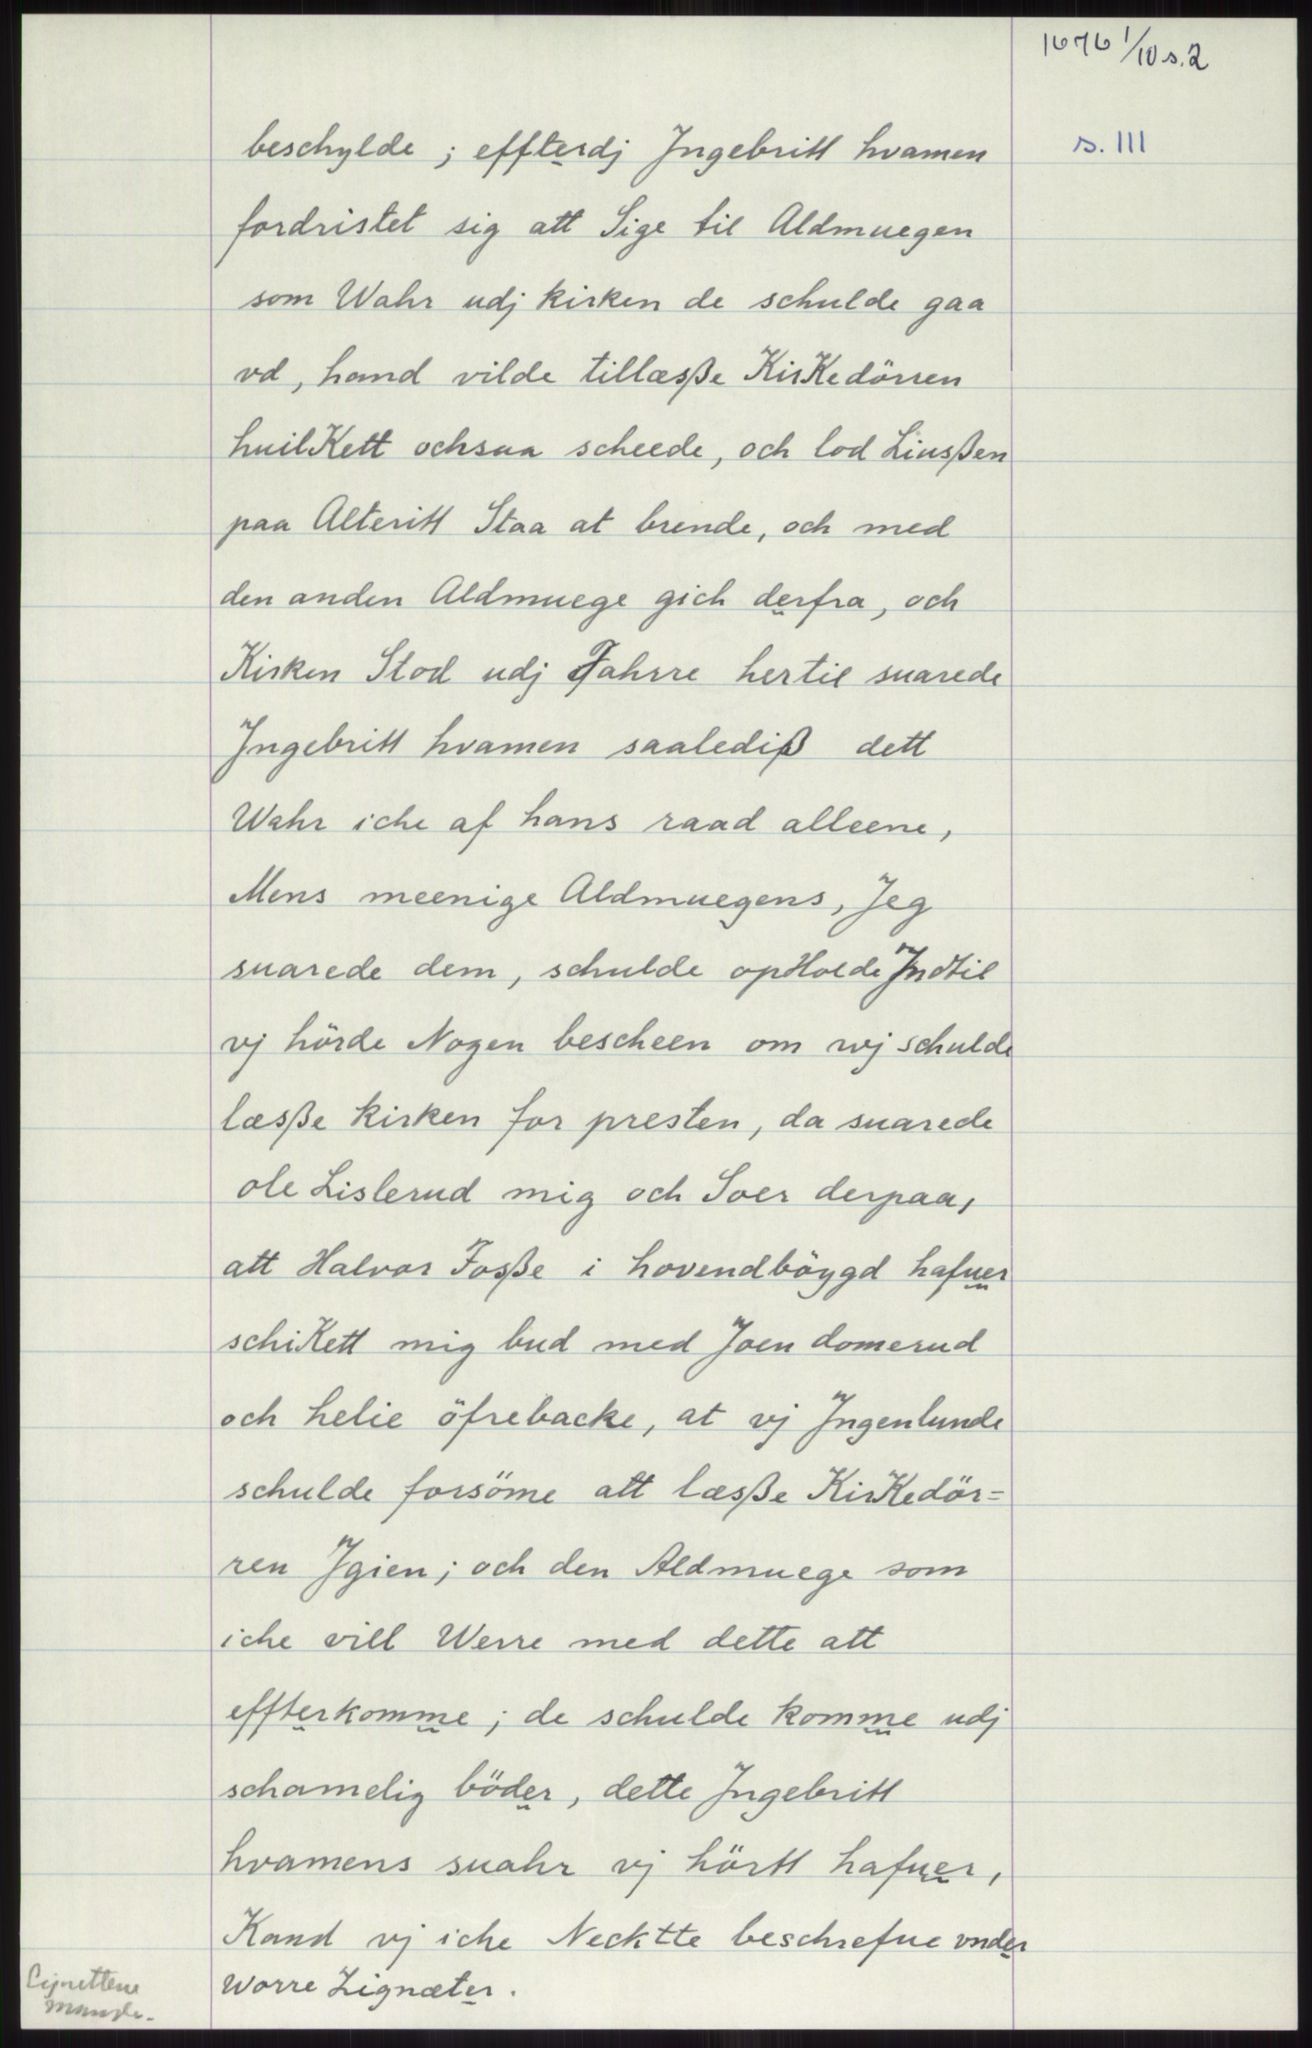 1676 1/10 s. 2
s. 111
beschylde ; effterdj Jngebritt hvamen
fordristet sig att Sige til Aldmuegen
som Wahr udj kirken de schulde gaa
vd, hand vilde tillæsße KirKedörren
huilKett ochsaa scheede, och lod Liusßen
paa Alteritt Staa at brende, och med
den anden Aldmuege gich derfra, och
Kirken Stod udj Fahrre hertil suarede
Jngebritt hvamen saalediß dett
Wahr iche af hans raad alleene,
Mens meenige Aldmuegens, Jeg
suarede dem, schulde opHolde Jndtil
vj hörde Nogen bescheen om wj schulde
læsße kirken for presten, da suarede
ole Lislerud mig och Soer derpaa,
att Halvor Fosße i hovendböygd hafuer
schiKett mig bud med Joen domerud
och helie öfrebacke, at vj Jngenlunde
schulde forsöme att læsße KirKedör=
ren Jgien ; och den Aldmuege som
iche vill Werre med dette att
effterkomme ; de schulde komme udj
schamelig böder, dette Jngebritt
hvamens suahr vj hörtt hafuer,
Kand vj iche Necktte beschrefue vnder
Worre Zignæter.
Signettene
mangle.